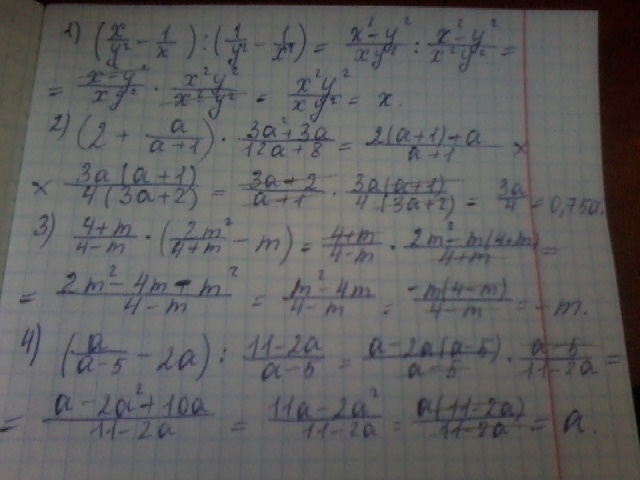 1) (x/y² - 1/x) : (1/y² - 1/x²) = (x²-y²)/(xy²) : (x²-y²)/(x²y²) =
= (x²-y²)/(xy²) · (x²y²)/(x²-y²) = (x²y²)/(xy²) = x.
2) (2 + a/(a+1)) · (3a²+3a)/(12a+8) = (2(a+1)+a)/(a+1) ×
× (3a(a+1))/(4(3a+2)) = (3a+2)/(a+1) · (3a(a+1))/(4(3a+2)) = 3a/4 = 0,75a.
3) (4+m)/(4-m) · (2m²/(4+m) - m) = (4+m)/(4-m) · (2m²-m(4+m))/(4+m) =
= (2m²-4m-m²)/(4-m) = (m²-4m)/(4-m) = (-m(4-m))/(4-m) = -m.
4) (a/(a-5) - 2a) : (11-2a)/(a-5) = (a-2a(a-5))/(a-5) · (a-5)/(11-2a) =
= (a-2a²+10a)/(11-2a) = (11a-2a²)/(11-2a) = (a(11-2a))/(11-2a) = a.